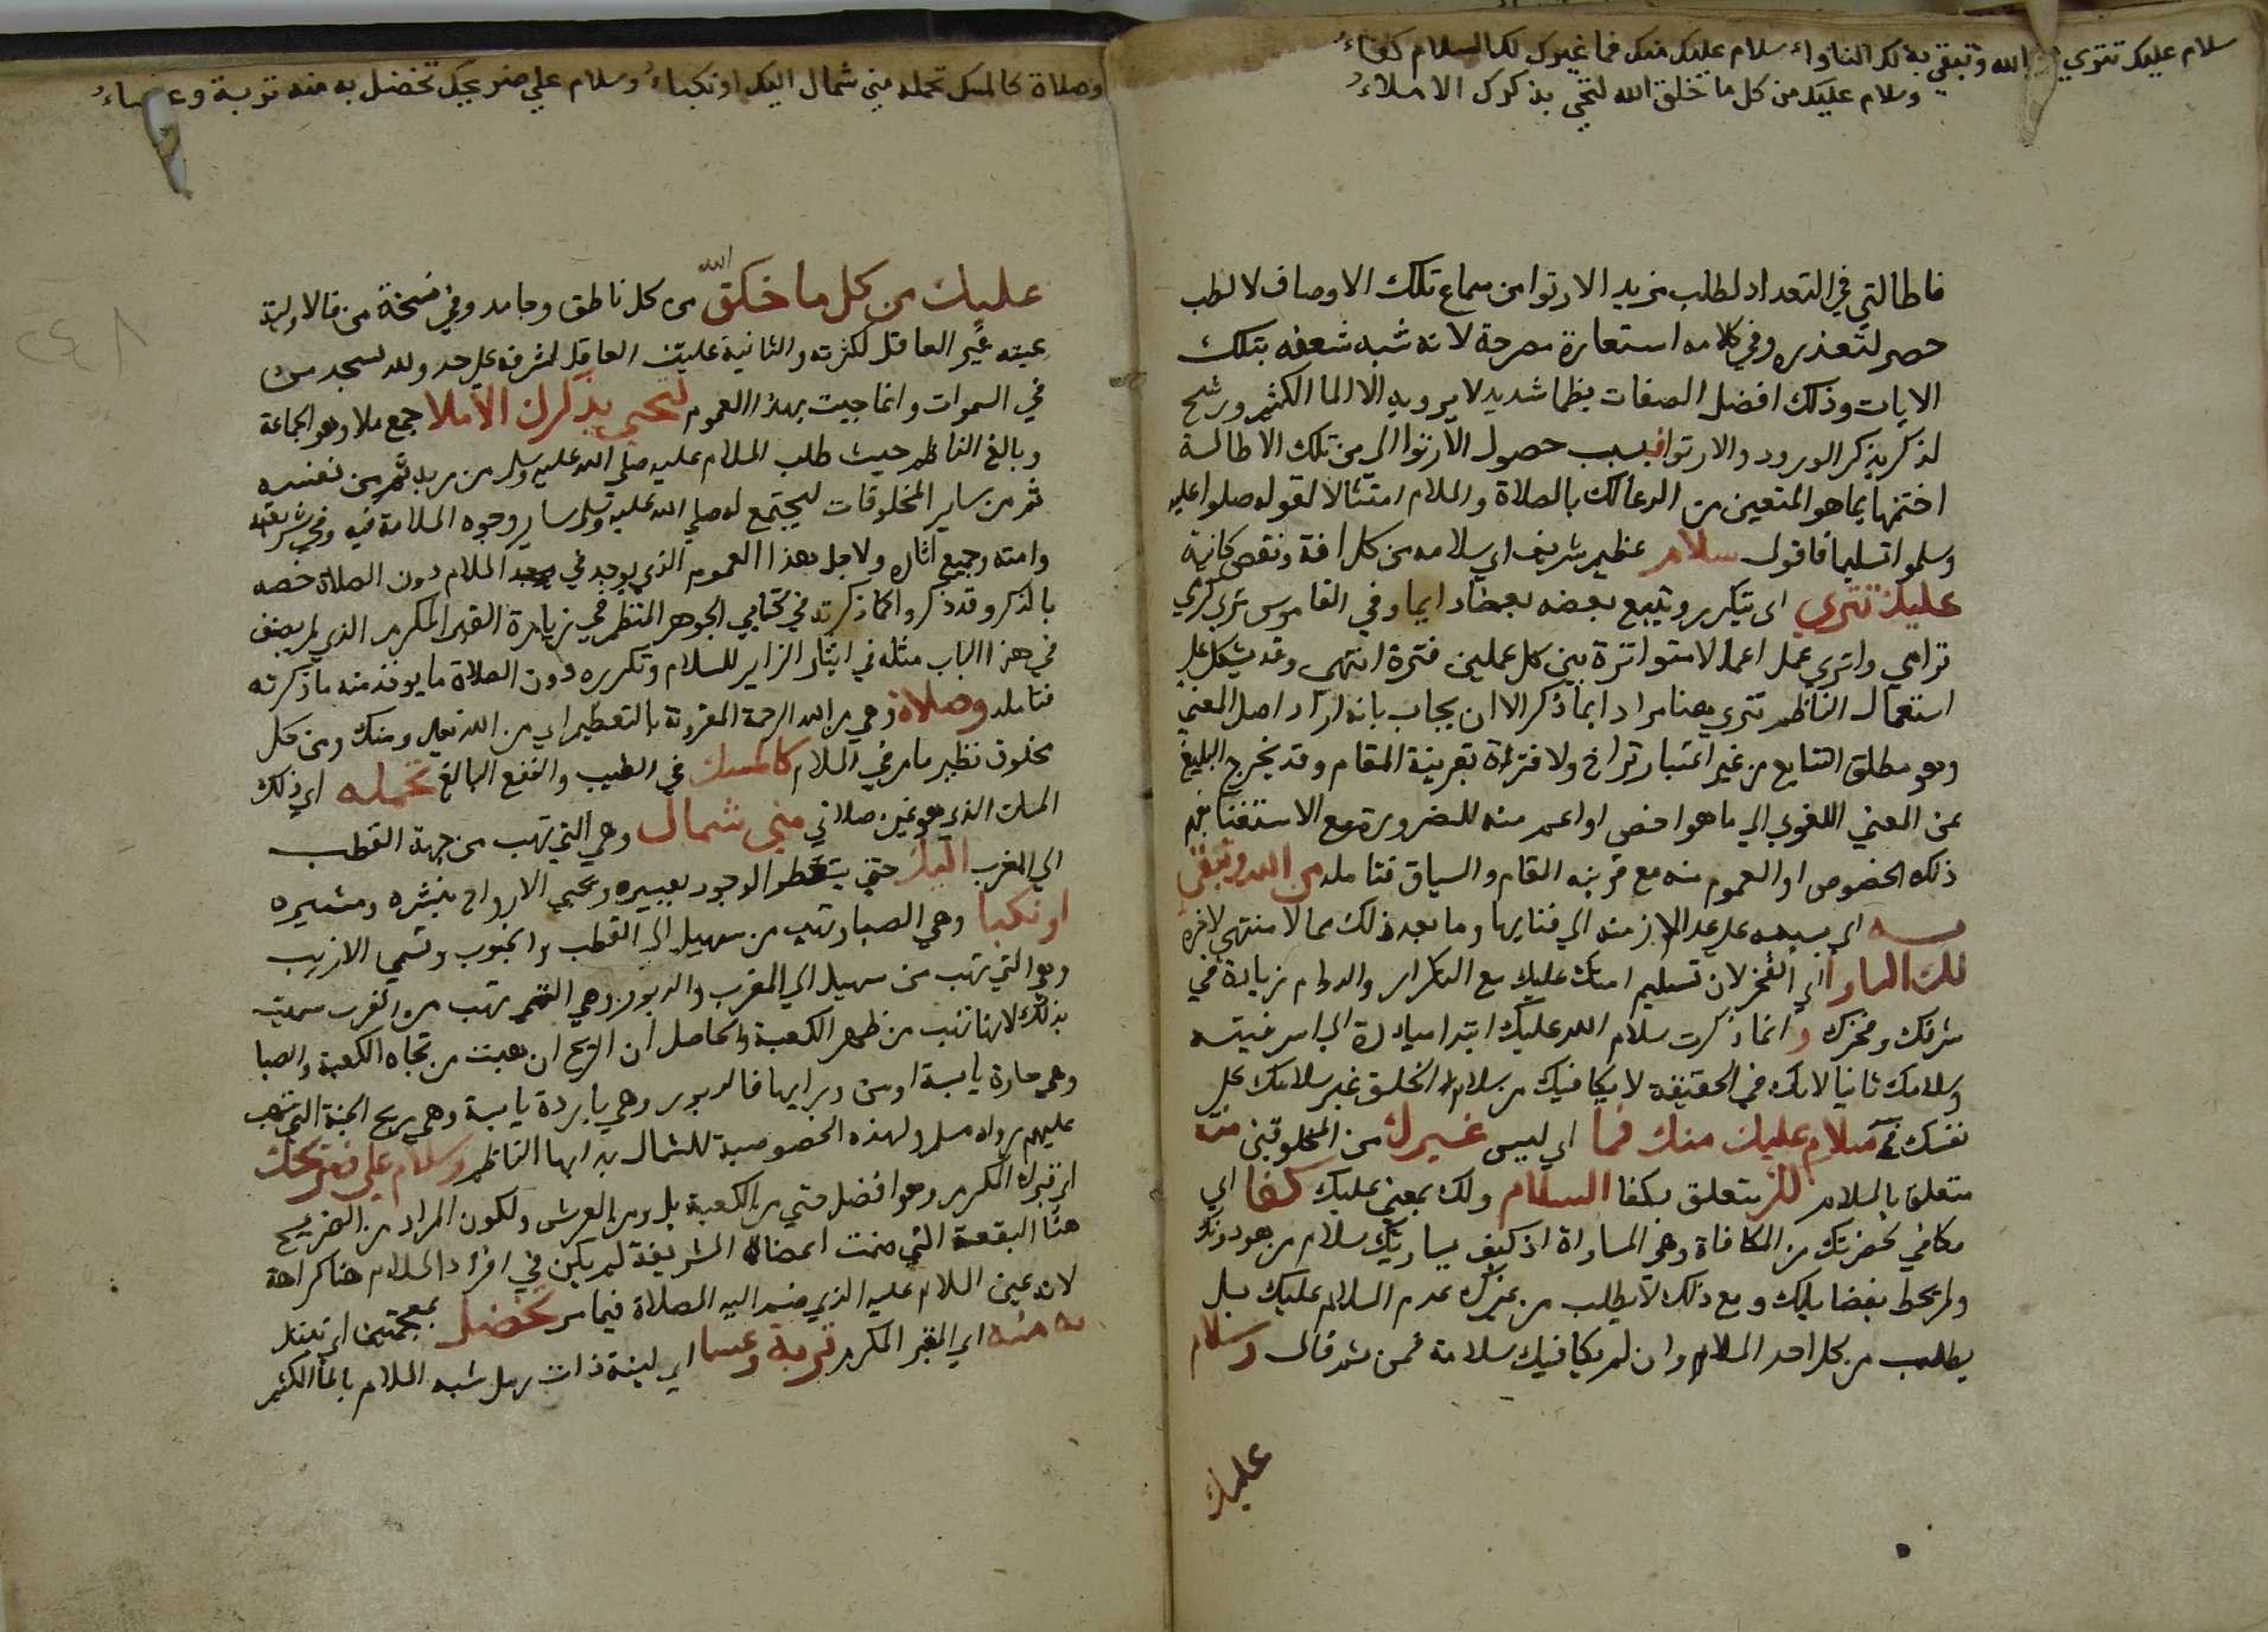 سلام عليك تترى من الله وتبقى به لك الناواء سلام عليك منك فما غيرك لك السلام كفاء
وسلام عليك من كل ما خلق الله لتحي بذكرك الاملاء
فاطالتي في التعداد لطلب مزيد الارتوا من سماع تلك الاوصاف لا لطلب
حصر لتعذره وفي كلامه استعارة مصرحة لانه شبه شعفه بتلك
الايات وذلك افضل الصفات بظما شديد لا يرويه الا الما الكثير ورشح
لذكر بذكر الورود والارتوا فبسبب حصول الارتوا الي من تلك الاطالة
اختمها بما هو المتعين من الدعا لك بالصلاة والسلام امتثالا لقوله صلوا عليه
وسلموا تسليما فاقول سلام عظيم شريف اي سلامه من كل افة ونقص كاينة
عليك تترى اي يتكرر ويتبع بعضه بعضا دايما وفي القاموس تترى كزي
تراخي واتري عمل اعمالا متواترة بين كل عملين فترة انتهى وقد يشكل عليه
استعمال الناظم تترى هنا مرادا بما ذكر الا ان يجاب بانه اراد اصل المعني
وهو مطلق التتابع من غير اعتبار تراخ ولا فترة بقرينة المقام وقد يخرج البليغ
عن المعني اللغوي الي ما هو اخص او اعم منه للضرورة مع الاستغنا بفهم
ذلك الخصوص او العموم منه مع قرينه المقام والسياق فتامله من الله وتبقى
به اي بسببه علي عد الازمنه الي فنايها وما بعد ذلك مما لا منتهى لاخره
لك الناوا اي الفخر لان تسليم امتك عليك مع التكرار والدوام زيادة في
شرفك وفخرك وانما ذكرت سلام الله عليك ابتدا مبادرة الي اشرفيته
وسلامك ثانيا لانك في الحقيقة لا يكافيك من سلام الخلق غير سلامك علي
نفسك فح سلام عليك منك فما اي ليس غيرك من المخلوقين منه
متعلق بالسلام لك متعلق بكفا السلام ولك بمعني عليك كفا اي
مكافي لحضرتك من المكافاة وهي المساواة اذ كيف يساويك سلام من هو دونك
ولم يحط بفضايلك ومع ذلك لا يطلب من غيرك عدم السلام عليك بل
يطلب من كل احد السلام وان لم يكافيك سلامة فمن ثم قال وسلام
عليك
وصلاة كالمسك تحمله مني شمال اليك او نكباء وسلام علي ضريحك تخضل به منه تربة وعساء
٢٤٨
عليك من كل ما خلق الله من كل ناطق وجامد وفي نسخة من فالاولية
عينه غير العاقل لكثرته والثانية غلبت العاقل لشرفه علي حد ولله يسجد من
في السموات وانما جيت بهذا العموم لتحي بذكرك الاملا جمع ملا وهو الجماعة
وبالغ الناظم حيث طلب السلام عليه صلي الله عليه وسلم من ربه ثم من نفسه
ثم من ساير المخلوقات ليجتمع له صلي الله عليه وسلم ساير وجوه السلامة فيه وفي شريعته
وامته وجميع اثاره ولاجل هذا العموم الذي يوجد في السلام دون الصلاة خصه
بالذكر وقد ذكروا كما ذكرته في كتابي الجوهر المنظم في زيارة القبر المكرم الذي لم يصنف
في هذا الباب مثله في ايثار الزاير للسلام وتكرره دون الصلاة ما يوخذ منه ما ذكرته
فتامله وصلاة وهي من الله الرحمة المقرونة بالتعظيم اي من الله تعالي ومنك ومن كل
مخلوق نظير ما مر في السلام كالمسك في الطيب والنفع البالغ تحمله اي ذلك
المسك الذي هو عين صلاتي مني شمال وهي التي تهب من جهة القطب
الي المغرب اليك حتي يتعطر الوجود بعبيره ويحيي الارواح بنشره ومسيره
او نكبا وهي الصبا وتهب من سهيل الي القطب والجنوب وتسمي الازيب
وهو التي تهب من سهيل الي المغرب والدبور وهي التي تهب من المغرب سميت
بذلك لانها تهب من ظهر الكعبة والحاصل ان الريح ان هبت من تجاه الكعبة والصبا
وهي حارة يابسة او من وراءها فالدبور وهي باردة يابسة وهي ريح الجنة التي تهب
عليهم رواه مسلم ولهذه الخصوصية للشمال بدا بها الناظم وسلام علي ضريحك
اي قبرك المكرم وهو افضل حتي من الكعبة بل ومن العرش ولكون المراد من الضريح
هنا البقعة التي ضمت اعضاه الشريفة لم يكن في افراد السلام هنا كراهة
لانه عين السلام عليه الذي ضم اليه الصلاة فيما مر تخضل بمعجمتين اي تبتل
به منه اي القبر المكرم تربة وعسا اي لينة ذات رمل شبه السلام بالما الكثير